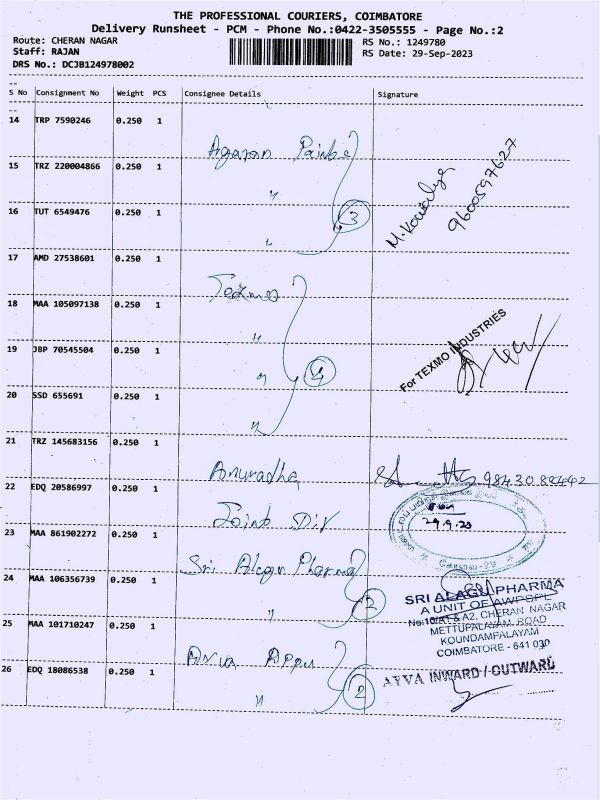 THE PROFESSIONAL COURIERS, COIMBATORE
Delivery Runsheet - PCM - Phone No.:0422-3505555 - Page No.:2
Route: CHERAN NAGAR RS No.: 1249780
Staff: RAJAN RS Date: 29-Sep-2023
DRS No.: DCJB124978002
S No Consignment No Weight PCS Consignee Details Signature
14 TRP 7590246 0.250 1
Agaran
15 TRZ 220004866 0.250 1 "
M.Kowsalya 9600597627
16 TUT 6549476 0.250 1 " 3
17 AMD 27538601 0.250 1
Texmo
18 MAA 105097138 0.250 1 "
For TEXMO INDUSTRIES
19 JBP 70545504 0.250 1 " 4
20 SSD 655691 0.250 1 "
21 TRZ 145683156 0.250 1
Anuradha
22 EDQ 20586997 0.250 1
Joint Dir
29.9.23
23 MAA 861902272 0.250 1
கோவை-29
Sri Alagu Pharma
24 MAA 106356739 0.250 1 " 2
SRI ALAGU PHARMA
A UNIT OF AWPSPL
No:10/A1 & A2, CHERAN NAGAR
METTUPALAYAM ROAD
KOUNDAMPALAYAM
COIMBATORE - 641 030
25 MAA 101710247 0.250 1
26 EDQ 18086538 0.250 1 " 2
AYVA INWARD / OUTWARD